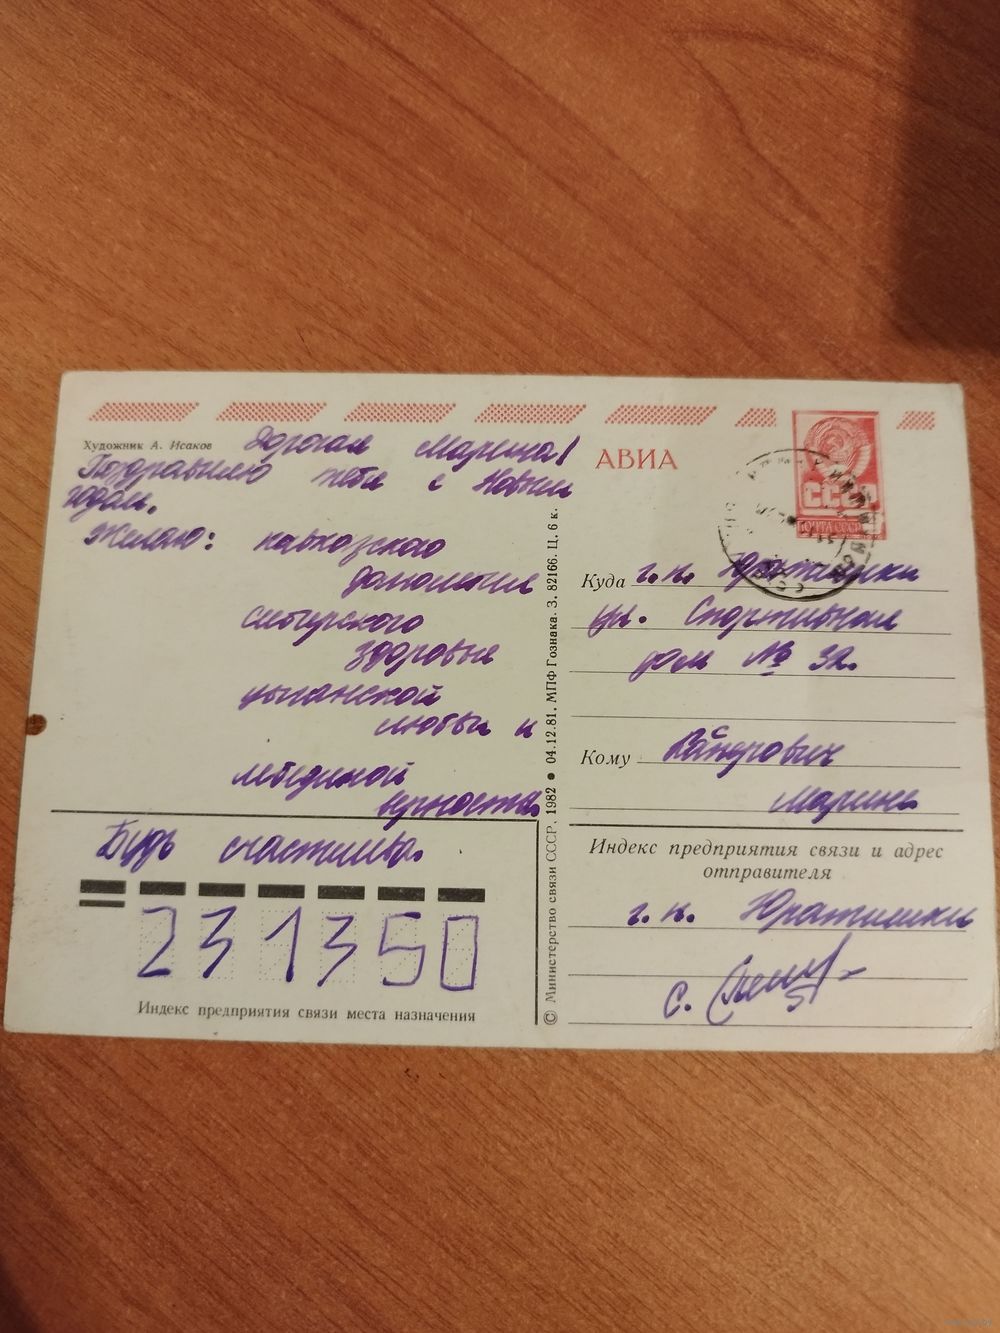 Художник А. Исаков
Дорогая Марина!
Поздравляю тебя с Новым
годом.
Желаю: кавказского
долголетия
сибирского
здоровья
цыганской
любви и
лебединой
верности.
Будь счастлива.
231350
Индекс предприятия связи места назначения
© Министерство связи СССР, 1982 ● 04.12.81. МПФ Гознака. З. 82166. Ц. 6 к.
АВИА
СССР
ПОЧТА СССР
Куда г.п. Юратишки
ул. Спортивная
дом № 32.
Кому
Марине
Индекс предприятия связи и адрес
отправителя
г.п. Юратишки
с.